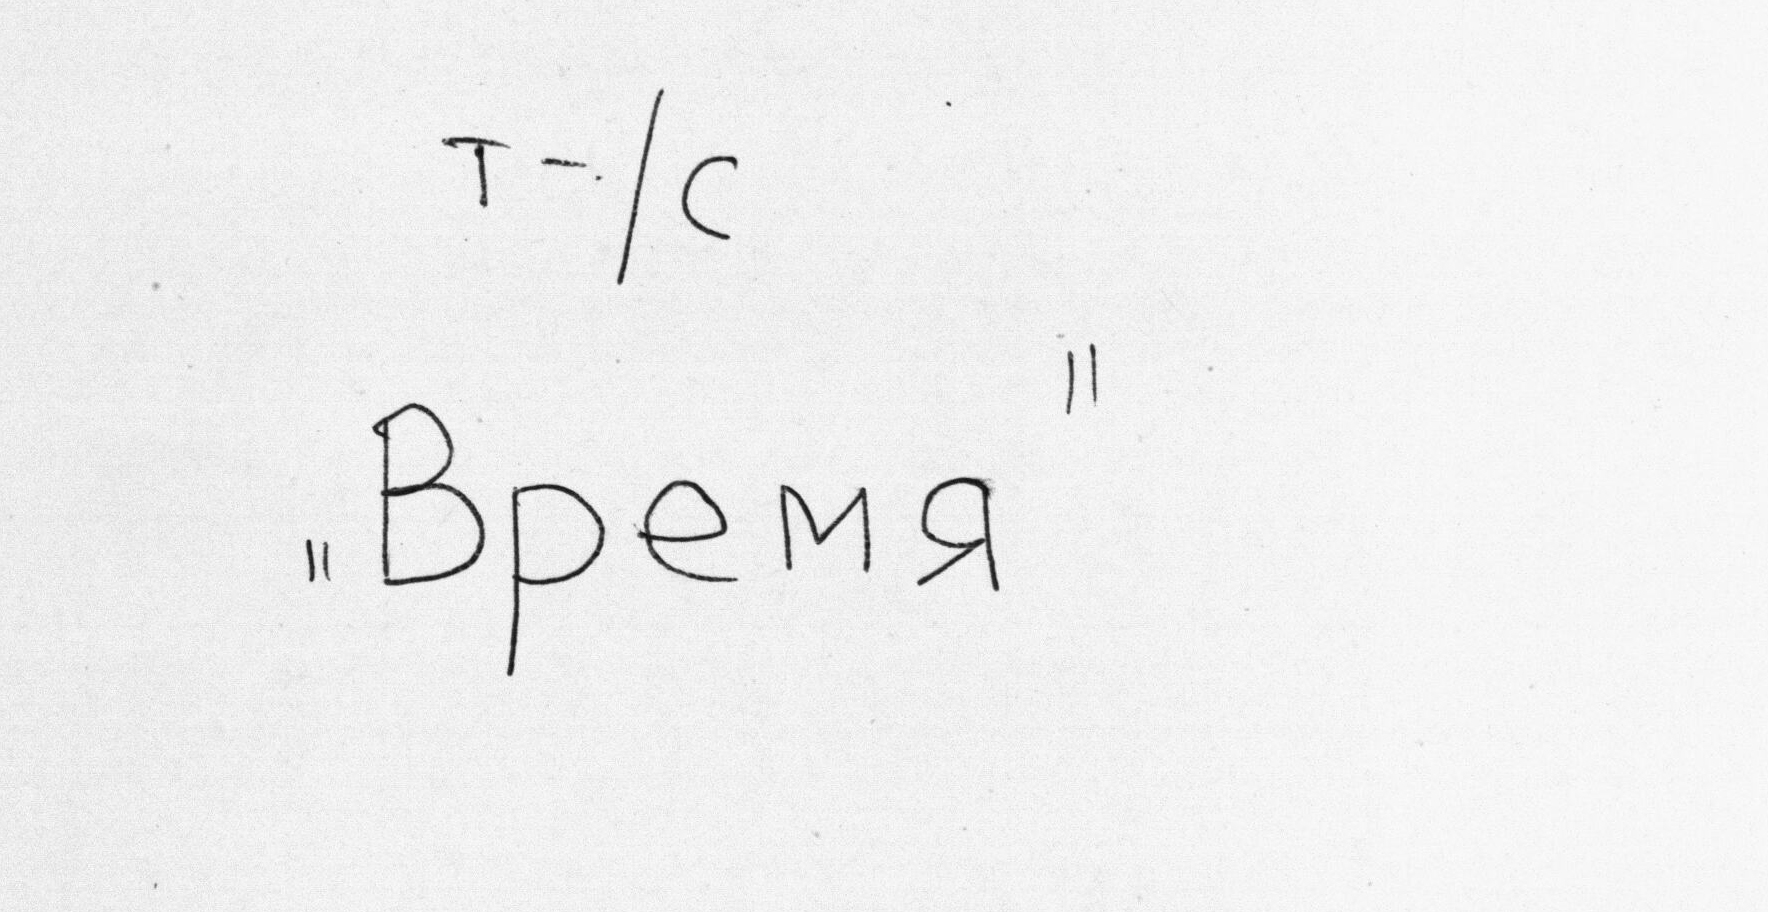 т-/с
„Время"